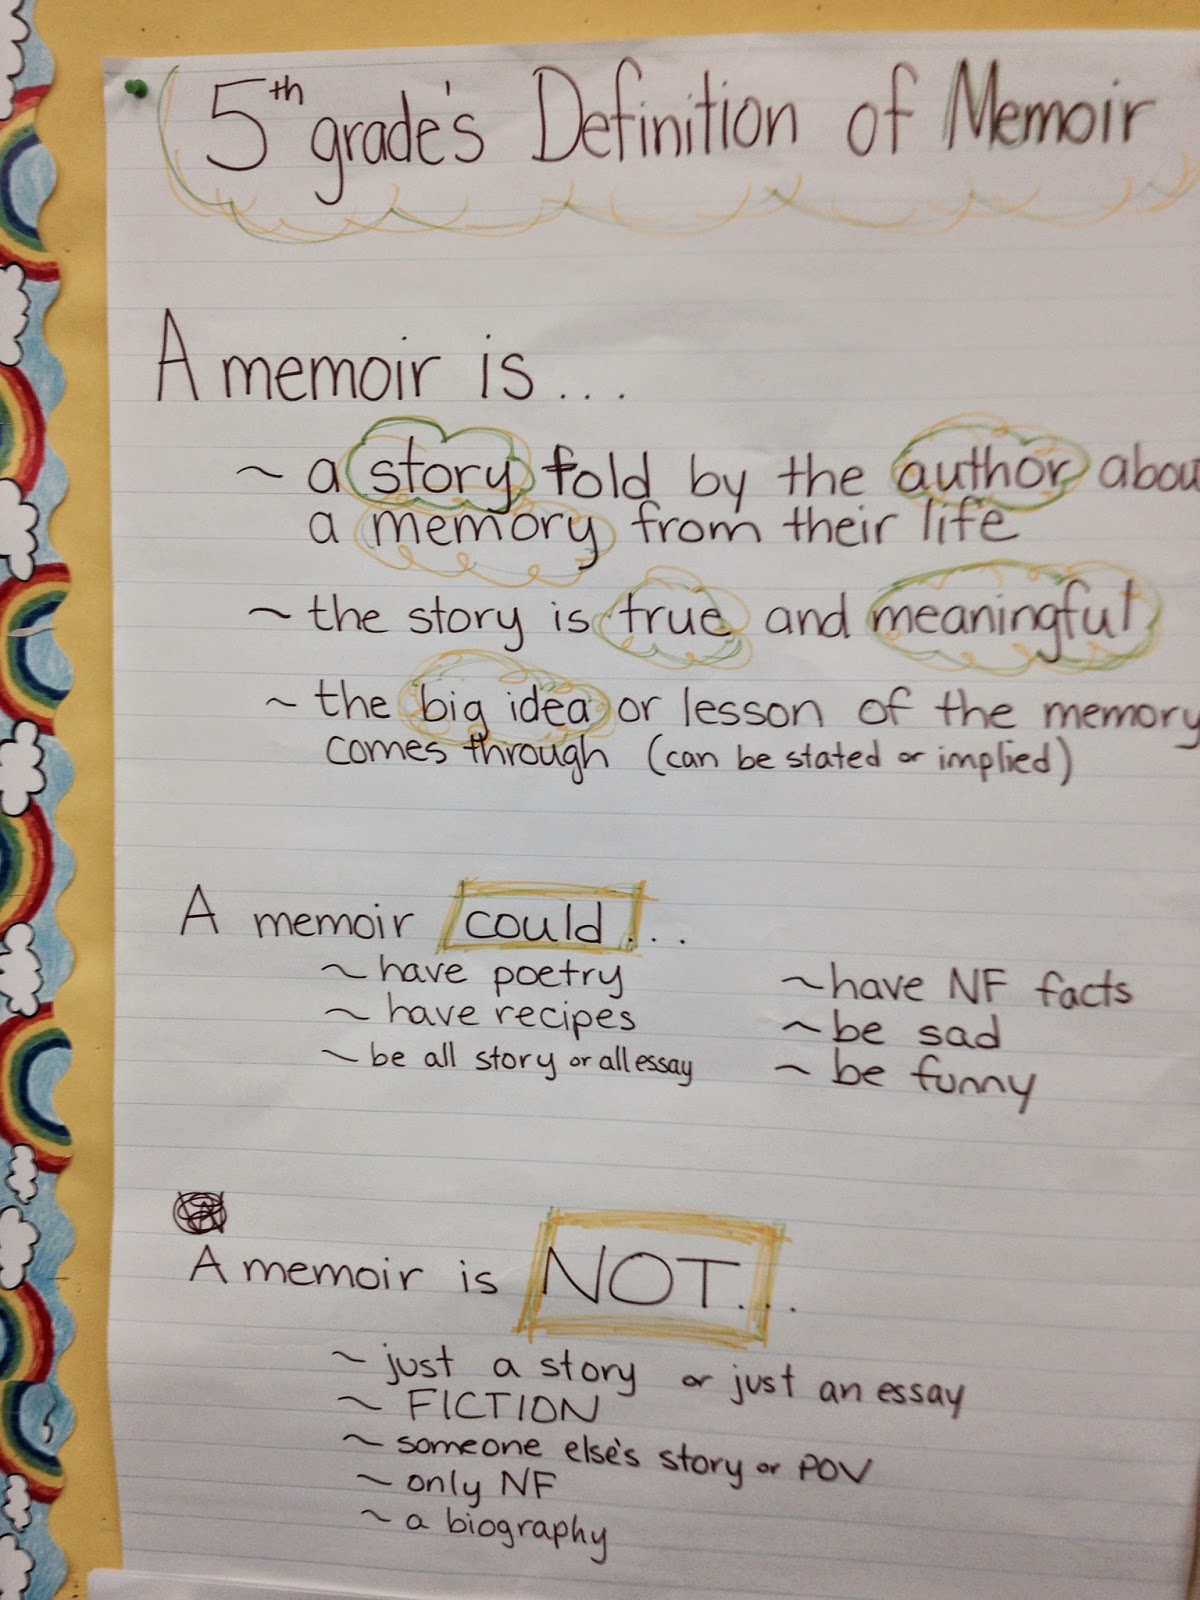 5th grade's Definition of Memoir
A memoir is...
~ a story told by the author abou
a memory from their life
~ the story is true and meaningful
~ the big idea or lesson of the memory
comes through (can be stated or implied)
A memoir could...
~ have poetry
~ have recipes
~ be all story or all essay
~ have NF facts
~ be sad
~ be funny
A memoir is NOT...
~ just a story or just an essay
~ FICTION
~ someone else's story or POV
~ only NF
~ a biography